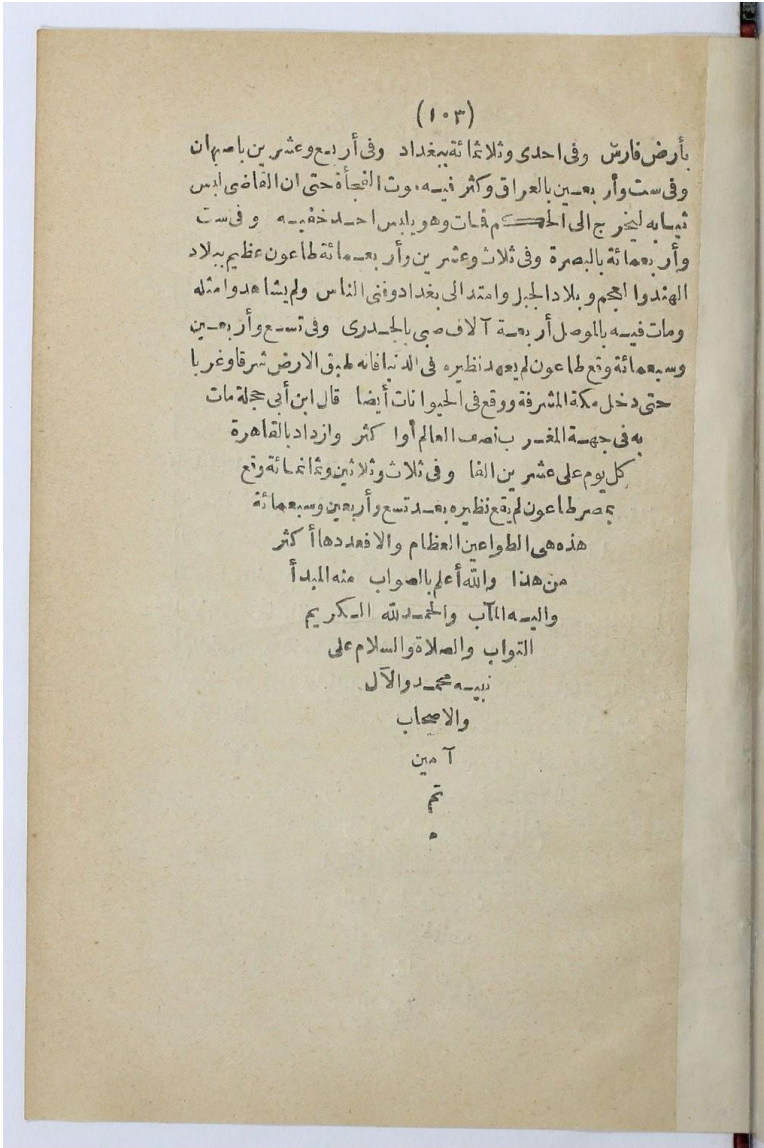 (١٠٣)
بأرض فارس وفى احدى وثلاثمائة ببغداد وفى أربع وعشرين باصبهان
وفى ست وأربعين بالعراق وكثر فيه موت الفجأة حتى ان القاضى لبس
ثيابه ليخرج الى الحكم فمات وهو يلبس احد خفيه وفى ست
وأربعمائة بالبصرة وفى ثلاث وعشرين وأربعمائة طاعون عظيم ببلاد
الهند والعجم وبلاد الجبل وامتد الى بغداد وفنى الناس ولم يشاهدوا مثله
ومات فيه بالموصل أربعة آلاف صبى بالجدرى وفى تسع وأربعين
وسبعمائة وقع طاعون لم يعهد نظيره فى الدنيا فانه طبق الارض شرقا وغربا
حتى دخل مكة المشرفة ووقع فى الحيوانات أيضا قال ابن أبى حجلة مات
به فى جهة المغرب نصف العالم أوا كثر وازداد بالقاهرة
كل يوم على عشرين الفا وفى ثلاث وثلاثين وثمانمائة وقع
بمصر طاعون لم يقع نظيره بعد تسع وأربعين وسبعمائة
هذه هى الطواعين العظام والا فعددها أكثر
من هذا والله أعلم بالصواب منه المبدأ
واليه المآب والحمد لله الكريم
التواب والصلاة والسلام على
نبيه محمد والآل
والاصحاب
آمين
تم